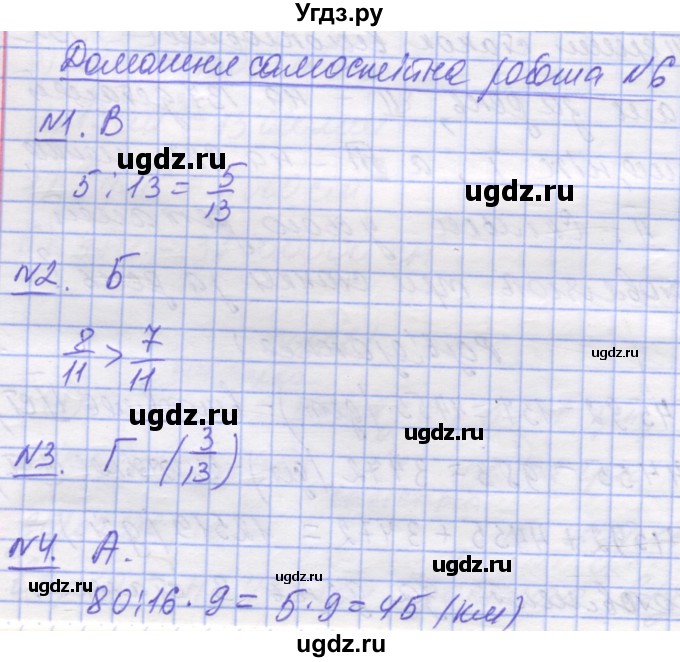 Угдз.ру
Домашня самостійна робота №6
№1. В
ugdz.ru
ugdz.ru
5 : 13 = 5/13
№2. Б
8/11 > 7/11
ugdz.ru
ugdz.ru
ugdz.ru
№3. Г (3/13)
№4. А.
ugdz.ru
ugdz.ru
ugdz.ru
80:16·9 = 5·9 = 45 (км)
ugdz.ru
ugdz.ru
Угдз.ру